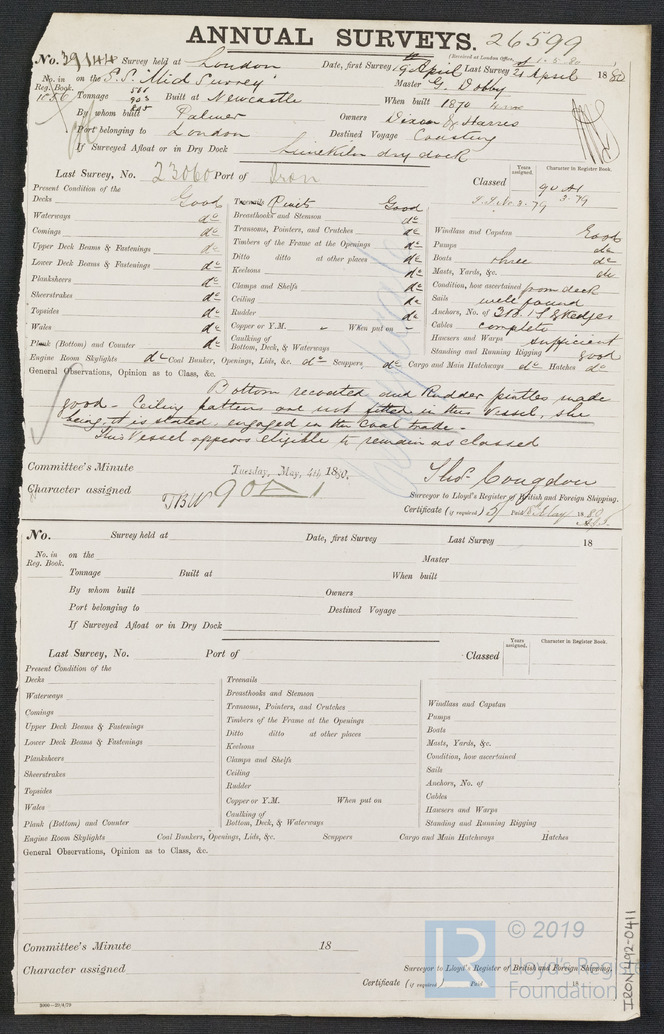 ANNUAL SURVEYS. 26599
(Received at London Office, 1-5-80
No. 39144 Survey held at London Date, first Survey 19th April Last Survey 21st April 1880
No. in Reg. Book. on the S.S. 'Mid Surrey' Master G. Dobby
1880 Tonnage 903 Built at Newcastle When built 1870
By whom built Palmer Owners Dixon & Harris
Port belonging to London Destined Voyage Coasting
If Surveyed Afloat or in Dry Dock Limekiln dry dock
Last Survey, No. 23060 Port of Iron Classed Years assigned. Character in Register Book. 90 A1
3-79
Present Condition of the
Decks Good Treenails Rivets Good
Waterways do Breasthooks and Stemson do
Comings do Transoms, Pointers, and Crutches do Windlass and Capstan Good
Upper Deck Beams & Fastenings do Timbers of the Frame at the Openings do Pumps do
Lower Deck Beams & Fastenings do Ditto ditto at other places do Boats three do
Planksheers do Keelsons do Masts, Yards, &c. do
Sheerstrakes do Clamps and Shelfs do Condition, how ascertained from deck
Topsides do Ceiling do Sails well found
Wales do Rudder do Anchors, No. of 3B. 1S. 2 Kedges
Plank (Bottom) and Counter do Copper or Y.M. " When put on – Cables complete
Caulking of Bottom, Deck, & Waterways Hawsers and Warps sufficient
Standing and Running Rigging good
Engine Room Skylights do Coal Bunker, Openings, Lids, &c. do Scuppers, do Cargo and Main Hatchways do Hatches do
General Observations, Opinion as to Class, &c.
Bottom recoated and Rudder pintles made
good – Ceiling battens are not fitted in this Vessel, she
being, it is stated, engaged in the Coal trade –
This Vessel appears eligible to remain as classed
Committee's Minute Tuesday, May, 4th 1880, Thos. Congdon
Character assigned TBW 90 A 1 Surveyor to Lloyd's Register of British and Foreign Shipping.
Certificate (if required) 5/ Paid May 1880
No. Survey held at Date, first Survey Last Survey 18
No. in Reg. Book. on the Master
Tonnage Built at When built
By whom built Owners
Port belonging to Destined Voyage
If Surveyed Afloat or in Dry Dock
Last Survey, No. Port of Classed Years assigned. Character in Register Book.
Present Condition of the
Decks Treenails
Waterways Breasthooks and Stemson
Comings Transoms, Pointers, and Crutches Windlass and Capstan
Upper Deck Beams & Fastenings Timbers of the Frame at the Openings Pumps
Lower Deck Beams & Fastenings Ditto ditto at other places Boats
Planksheers Keelsons Masts, Yards, &c.
Sheerstrakes Clamps and Shelfs Condition, how ascertained
Topsides Ceiling Sails
Wales Rudder Anchors, No. of
Plank (Bottom) and Counter Copper or Y.M. When put on Cables
Caulking of Bottom, Deck, & Waterways Hawsers and Warps
Standing and Running Rigging
Engine Room Skylights Coal Bunkers, Openings, Lids, &c. Scuppers Cargo and Main Hatchways Hatches
General Observations, Opinion as to Class, &c.
Committee's Minute 18
Character assigned Surveyor to Lloyd's Register of British and Foreign Shipping.
Certificate (if required) Paid 18
© 2019
LR Lloyd's Register
Foundation
IRON492-0411